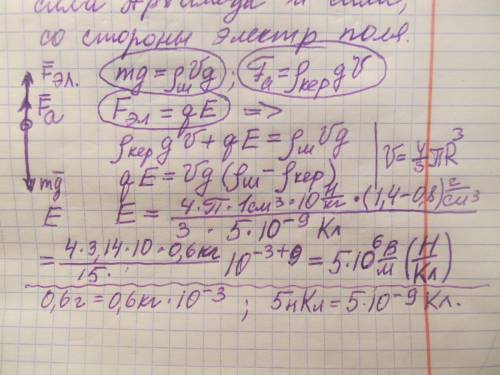 сила Архимеда и сила,
со стороны электр поля.
F̅эл. mg = ρшVg ; Fа = ρкер gV
F̅а Fэл = qE =>
ρкер gV + qE = ρшVg V = 4/3 πR³
mg̅ qE = Vg (ρш - ρкер)
E̅ E = 4·π·1см³·10 Н/кг·(1,4-0,8) г/см³ / 3·5·10⁻⁹ Кл
= 4·3,14·10·0,6кг / 15· 10⁻³⁺⁹ = 5·10⁶ В/м (Н/Кл)
0,6г = 0,6кг·10⁻³ ; 5нКл = 5·10⁻⁹ Кл.